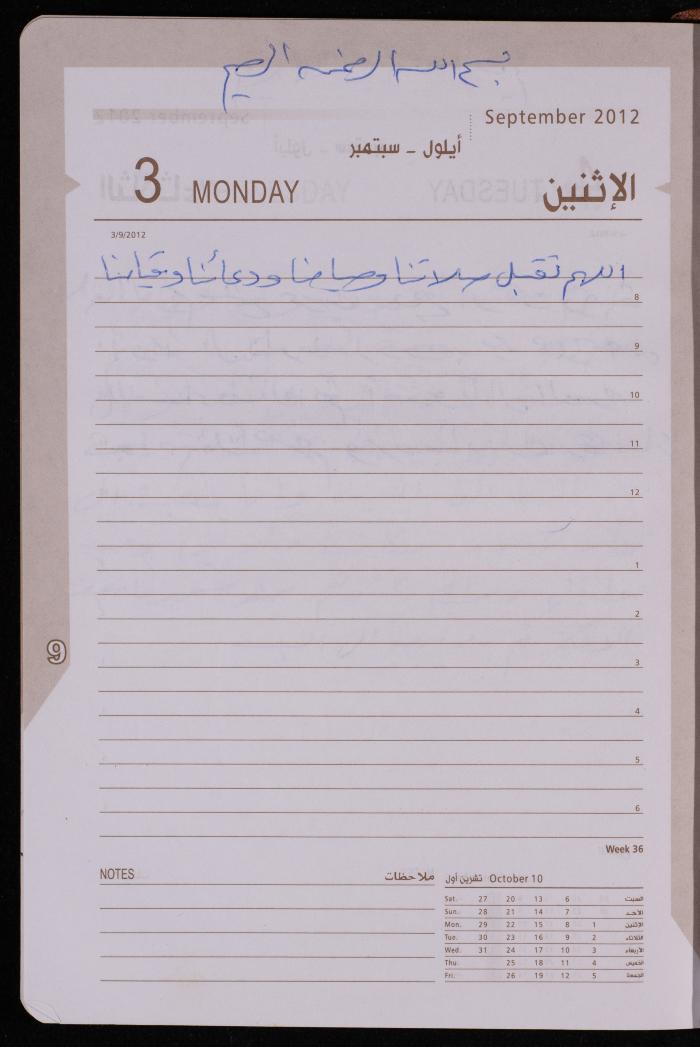 بسم الله الرحمن الرحيم
September 2012
أيلول - سبتمبر
3 MONDAY الإثنين
3/9/2012
اللهم تقبل صلاتنا وصيامنا ودعائنا وقيامنا
8
9
10
11
12
1
2
3
4
5
6
9
Week 36
NOTES ملاحظات
October 10 تشرين أول
Sat. 27 20 13 6 السبت
Sun. 28 21 14 7 الأحد
Mon. 29 22 15 8 1 الإثنين
Tue. 30 23 16 9 2 الثلاثاء
Wed. 31 24 17 10 3 الأربعاء
Thu. 25 18 11 4 الخميس
Fri. 26 19 12 5 الجمعة